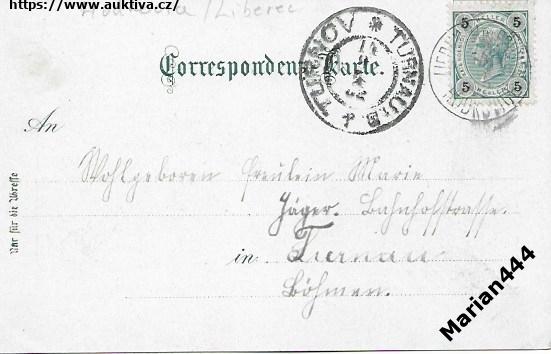 https://www.auktiva.cz/
/Liberec
5 5
5 5
Correspondenz-Karte.
TURNOV * TURNAU
An
Wohlgeboren Fräulein Marie
Jäger. Bahnhofstrasse.
in Turnau
Böhmen.
Nur für die Adresse
Marian444